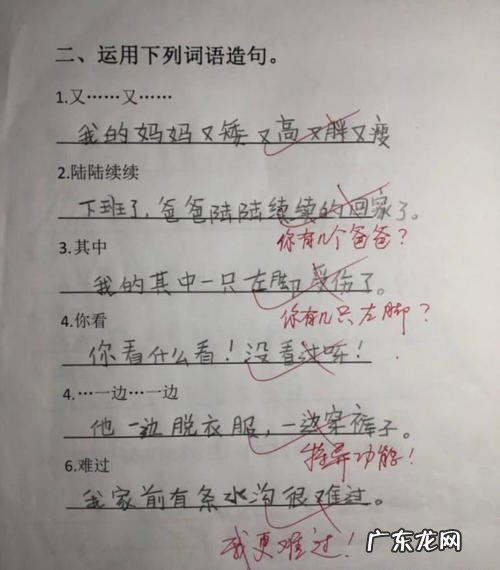 二、运用下列词语造句。
1.又……又……
我的妈妈又矮又高又胖又瘦
2.陆陆续续
下班了，爸爸陆陆续续的回家了。
你有几个爸爸？
3.其中
我的其中一只左脚受伤了。
你有几只左脚？
4.你看
你看什么看！没看过呀！
4.…一边…一边
他一边脱衣服，一边穿裤子。
特异功能！
6.难过
我家前有条水沟很难过。
我更难过！
广东龙网